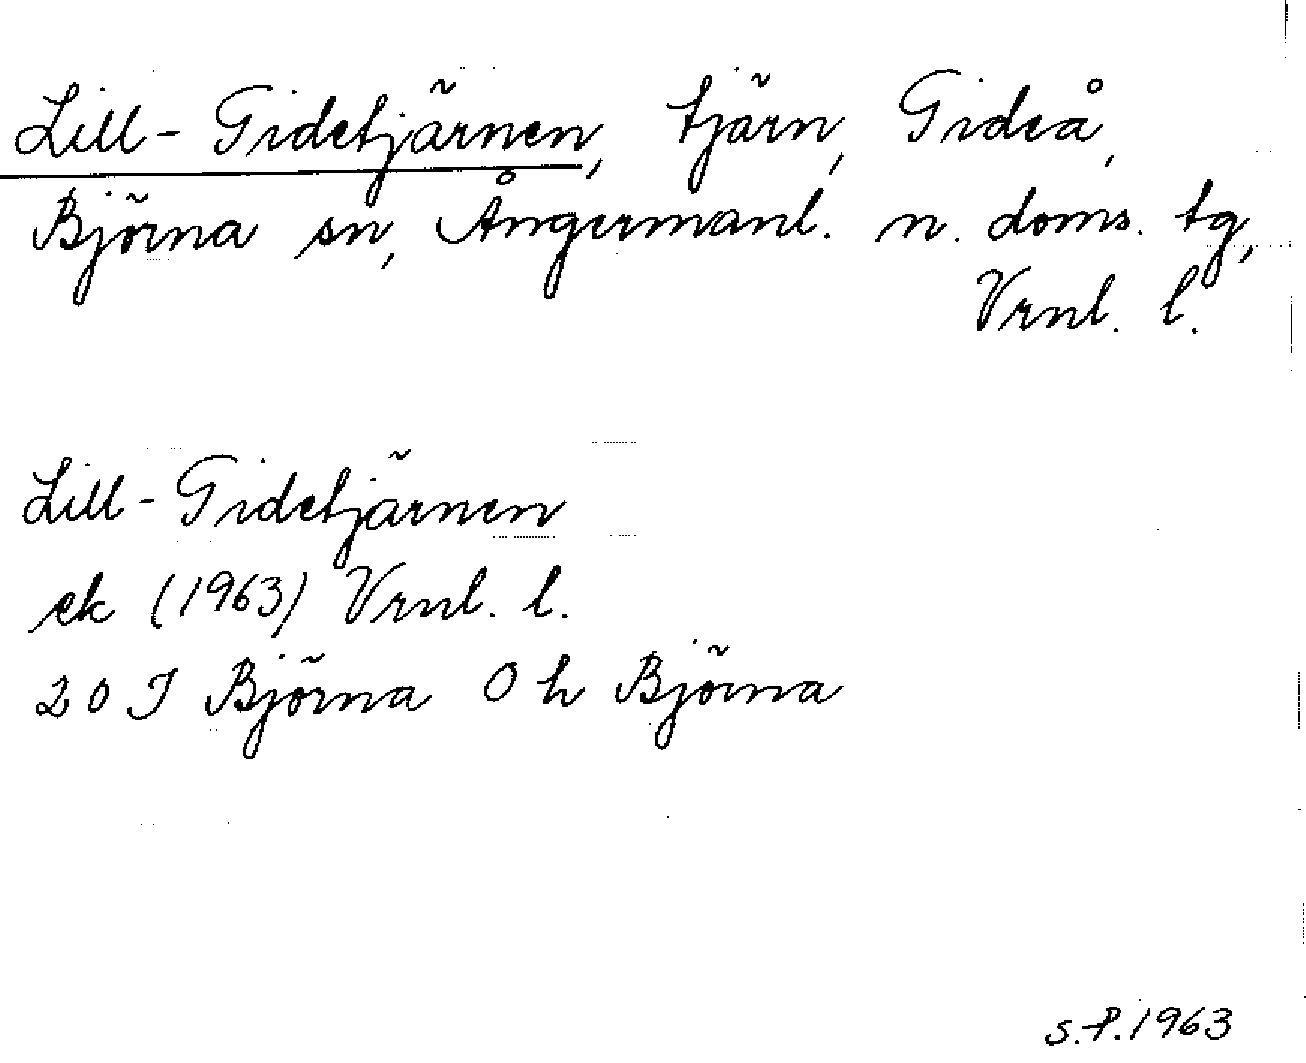 Lill-Gidetjärnen, tjärn, Gideå,
Björna sn, Ångermanl. n. doms. tg,
Vrnl. l.
Lill-Gidetjärnen
ek (1963) Vrnl. l.
20 J Björna O h Björna
S.P. 1963